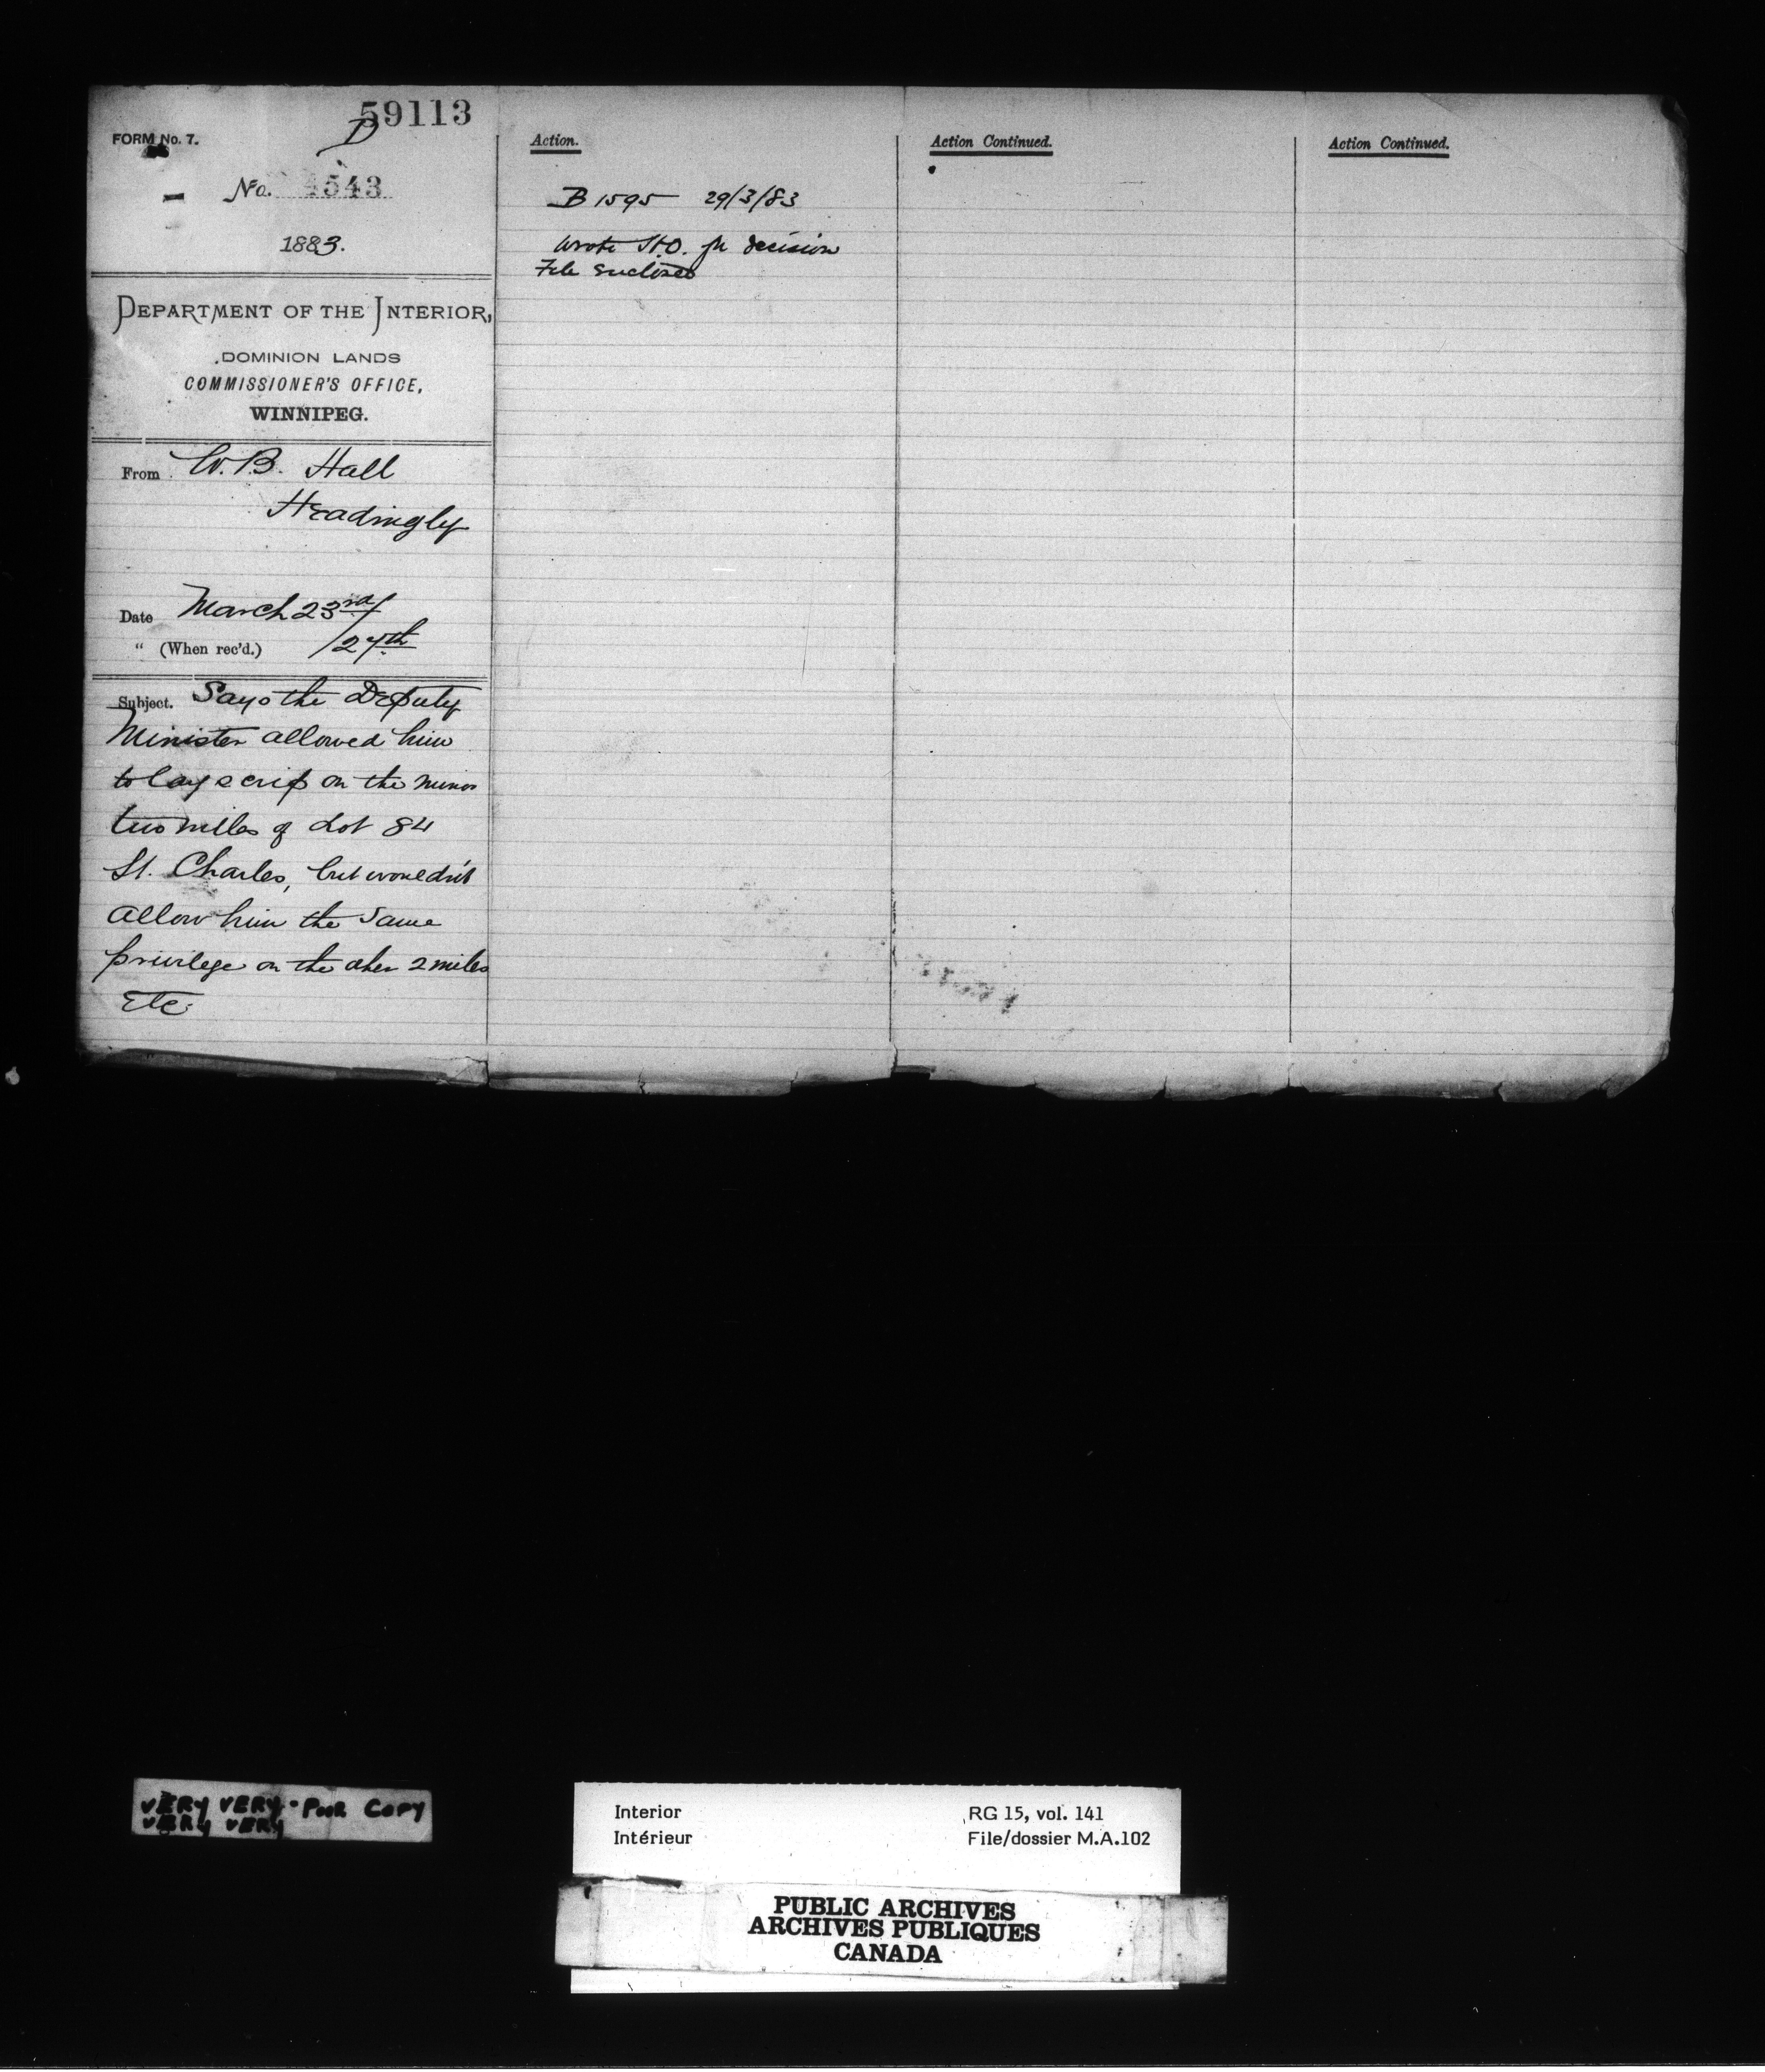 59113
D
FORM No. 7.
No. 4543
1883.
DEPARTMENT OF THE INTERIOR,
DOMINION LANDS
COMMISSIONER'S OFFICE,
WINNIPEG.
From W. B. Hall
Headingly
Date March 23rd/
" (When rec'd.) /27th
Subject. Says the Deputy
Minister allowed him
to lay scrip on the
two miles of Lot 84
St. Charles, but wouldn't
allow him the same
privilege on the other 2 miles
Etc.
Action.
B 1595 29/3/83
Wrote H.O. for decision
File enclosed
Action Continued.
Action Continued.
VERY VERY POOR COPY
VERY VERY
Interior RG 15, vol. 141
Intérieur File/dossier M.A.102
PUBLIC ARCHIVES
ARCHIVES PUBLIQUES
CANADA